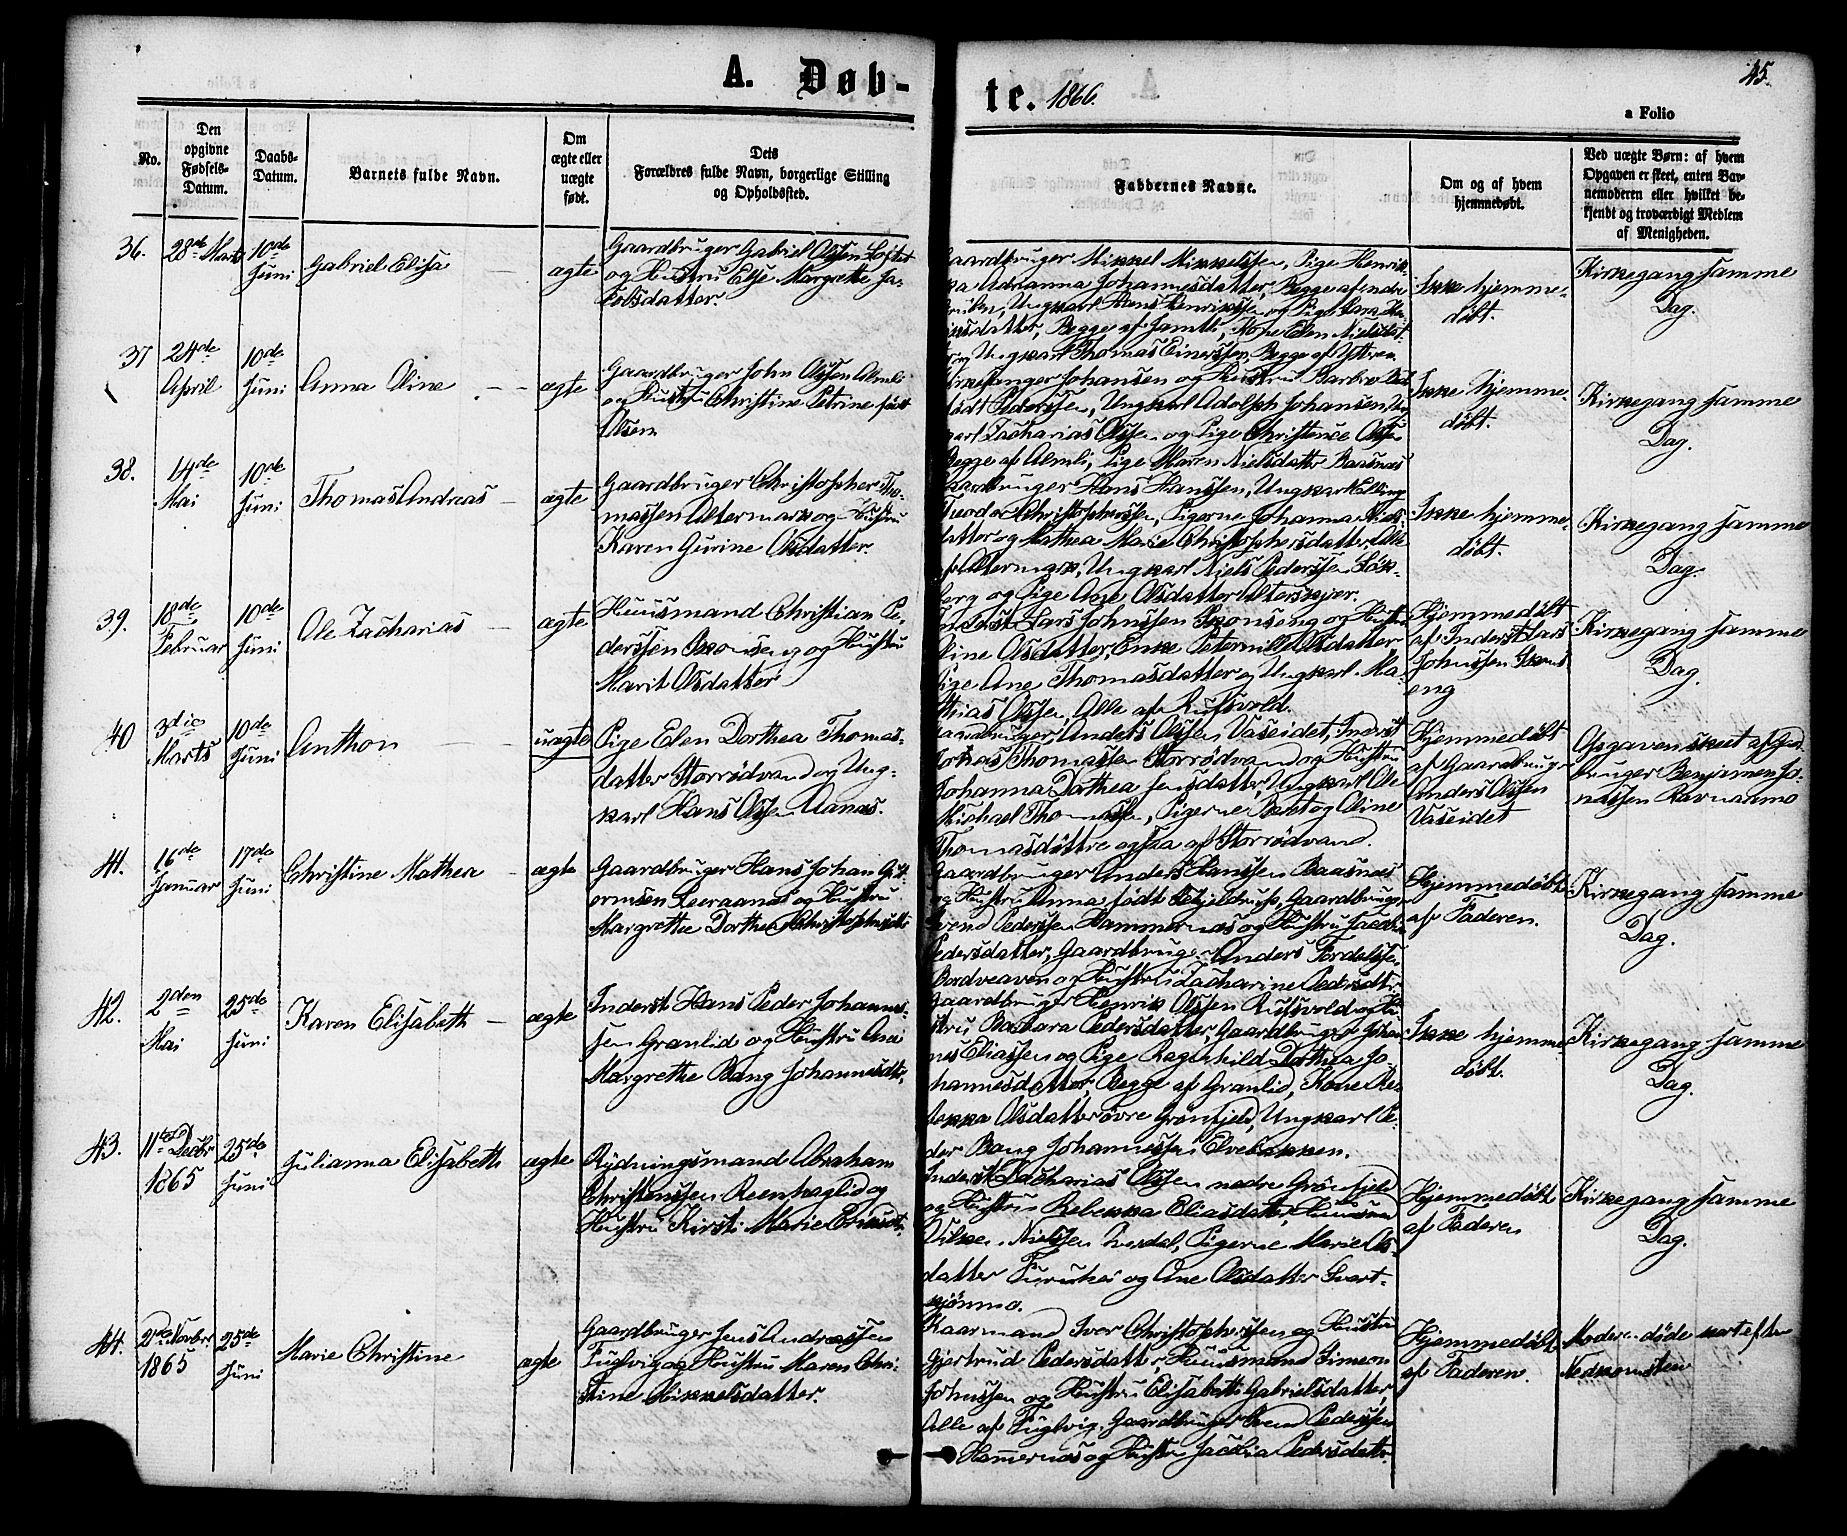 A. Døb-
te. 1866.
45.
a Folio
No.
Den
opgivne
Fødsels-
Datum.
Daabs-
Datum.
Barnets fulde Navn.
Om
ægte eller
uægte
født.
Dets
Forældres fulde Navn, borgerlige Stilling
og Opholdssted.
Faddernes Navne.
Om og af hvem
hjemmedøbt.
Ved uægte Børn: af hvem
Opgaven er skeet, enten Bar-
nemoderen eller hvilket be-
kjendt og troværdigt Medlem
af Menigheden.
36.
28de Marts
10de
Juni
Gabriel Elisa
ægte
Gaardbruger Gabriel Olssen
og Hustru Else Margrethe Ja-
kobsdatter.
aardbruger Mikkel Mikkelssen, Pige Henrik-
ka Adrianna Johannesdatter, Begge af
Ungkarl Hans Henrikssen og Pige
datter, Begge af Jamtli, Kone Elen Nielsdat-
Ungkarl Thomas Einerssen, Begge af Ytteren
Ikke hjemme-
døbt.
Kirkegang samme
Dag.
37
24de
April
10de
Juni
Anna Oline
ægte
Gaardbruger John Olssen Almli
og Hustru Christine Petrine født
Olsen
Kirkesanger Johansen og Hustru Barbro
født Pederssen, Ungkarl Adolph Johansen,
Zacharias Olssen og Pige Christence Olssen
Begge af Almli, Pige Maren Nielsdatter Baasnæs
Ikke hjemme-
døbt.
Kirkegang samme
Dag.
38.
14de
Mai
10de
Juni
Thomas Andreas
ægte
Gaardbruger Christopher Tho-
massen Altermark og Hustru
Karen Gurine Olsdatter.
aardbruger Hans Hanssen, Ungkarl Elling
Teodor Christopherssen, Pigerne Johanna Niels-
datter og Mathea Marie Christophersdatter, Alle
af Altermark, Ungkarl Niels Pederssen
berg og Pige Ane Olsdatter Alterskjær.
Ikke hjemme-
døbt.
Kirkegang samme
Dag.
39.
18de
Februar
10de
Juni
Ole Zacharias
ægte
Huusmand Christian Pe-
derssen Skonseng og Hustru
Marit Olsdatter
Inderst Lars Johnssen Skonseng og Hustru
Oline Olsdatter, Enke Petternille Olsdatter
Pige Ane Thomasdatter og Ungkarl Ma-
thias Olssen, Alle af Rufsvold.
Hjemmedøbt
af Inderst Lars
Johnssen Skons-
eng
Kirkegang samme
Dag.
40
3die
Marts
10de
Juni
Anthon
uægte
Pige Elen Dorthea Thomas-
datter Storrødvand og Ung-
karl Hans Olssen Aanæs.
aardbruger Anders Olssen Vaseidet, Inderst
Jonas Thomassen Storrødvand og Hustru
Johanna Dorthea Jensdatter, Ungkarl Ole
Michael Thomassen, Pigerne Berit og Oline
Thomasdøttre ogsaa af Storrødvand.
Hjemmedøbt
af Gaardbruger
Anders Olssen
Vaseidet
Opgaven skeet af Gaard-
bruger Benjamen Jo-
nassen Ravnaamo
41.
16de
Januar
17de
Juni
Christine Mathea
ægte
Gaardbruger Hans Johan Gut-
ormsen Leeraanæs og Hustru
Margrethe Dorthea Christophersdtr.
Gaardbruger Anders Hanssen Baasnæs
og Hustru Anna født Schjeldrups, Gaardbruger
Svend Pederssen Hammernæs og Hustru Jacobia
Pedersdatter, Gaardbruger Anders Tordalsse
Bordveaven og Hustru Zacharine Pedersdtr.
Hjemmedøbt
af Faderen.
Kirkegang samme
Dag.
42.
2den
Mai
25de
Juni
Karen Elisabeth
ægte
Inderst Hans Peder Johannes-
sen Granlid og Hustru Ane
Margrethe Bang Johannesdtr.
Gaardbruger Henrik Olssen Rufsvold og Hu-
stru Barbara Pedersdatter, Gaardbruger Johan-
nes Eliassen og Pige Ragnhild Dorthea Jo-
hannesdatter, Begge af Granlid, Kone Re-
bekka Olsdatter øvre Grønfjeld, Ungkarl Pe-
der Bang Johannessen Elvebakken.
Ikke hjemme-
døbt.
Kirkegang samme
Dag.
43.
11te Decbr
1865
25de
Juni
Julianna Elisabeth
ægte
Rydningsmand Abraham
Christenssen Reenhaglid og
Hustru Kirsti Marie
Inderst Zacharias Olssen nedre Grønfjeld
og Hustru Rebekka Eliasdatter, Huusmand
Nielssen, Pigerne Marie Ols-
datter Furuhei og Ane Olsdatter Svart-
tjønmo.
Hjemmedøbt
af Faderen
Kirkegang samme
Dag.
44.
2den Novbr
1865
25de
Juni
Marie Christine
ægte
Gaardbruger Jens Andreassen
Fuglvig og Hustru Maren Chri-
stine Mikkelsdatter.
Kaarmand Iver Christopherssen og Hustru
Gjertrud Pedersdatter, Huusmand Simeon
Johnssen og Hustru Elisabeth Gabrielsdatter,
Alle af Fuglvig, Gaardbruger Svend Pederssen
Hammernæs og Hustru Jacobia Pedersdatter
Hjemmedøbt
af Faderen.
Moderen døde kort efter
Nedkomsten